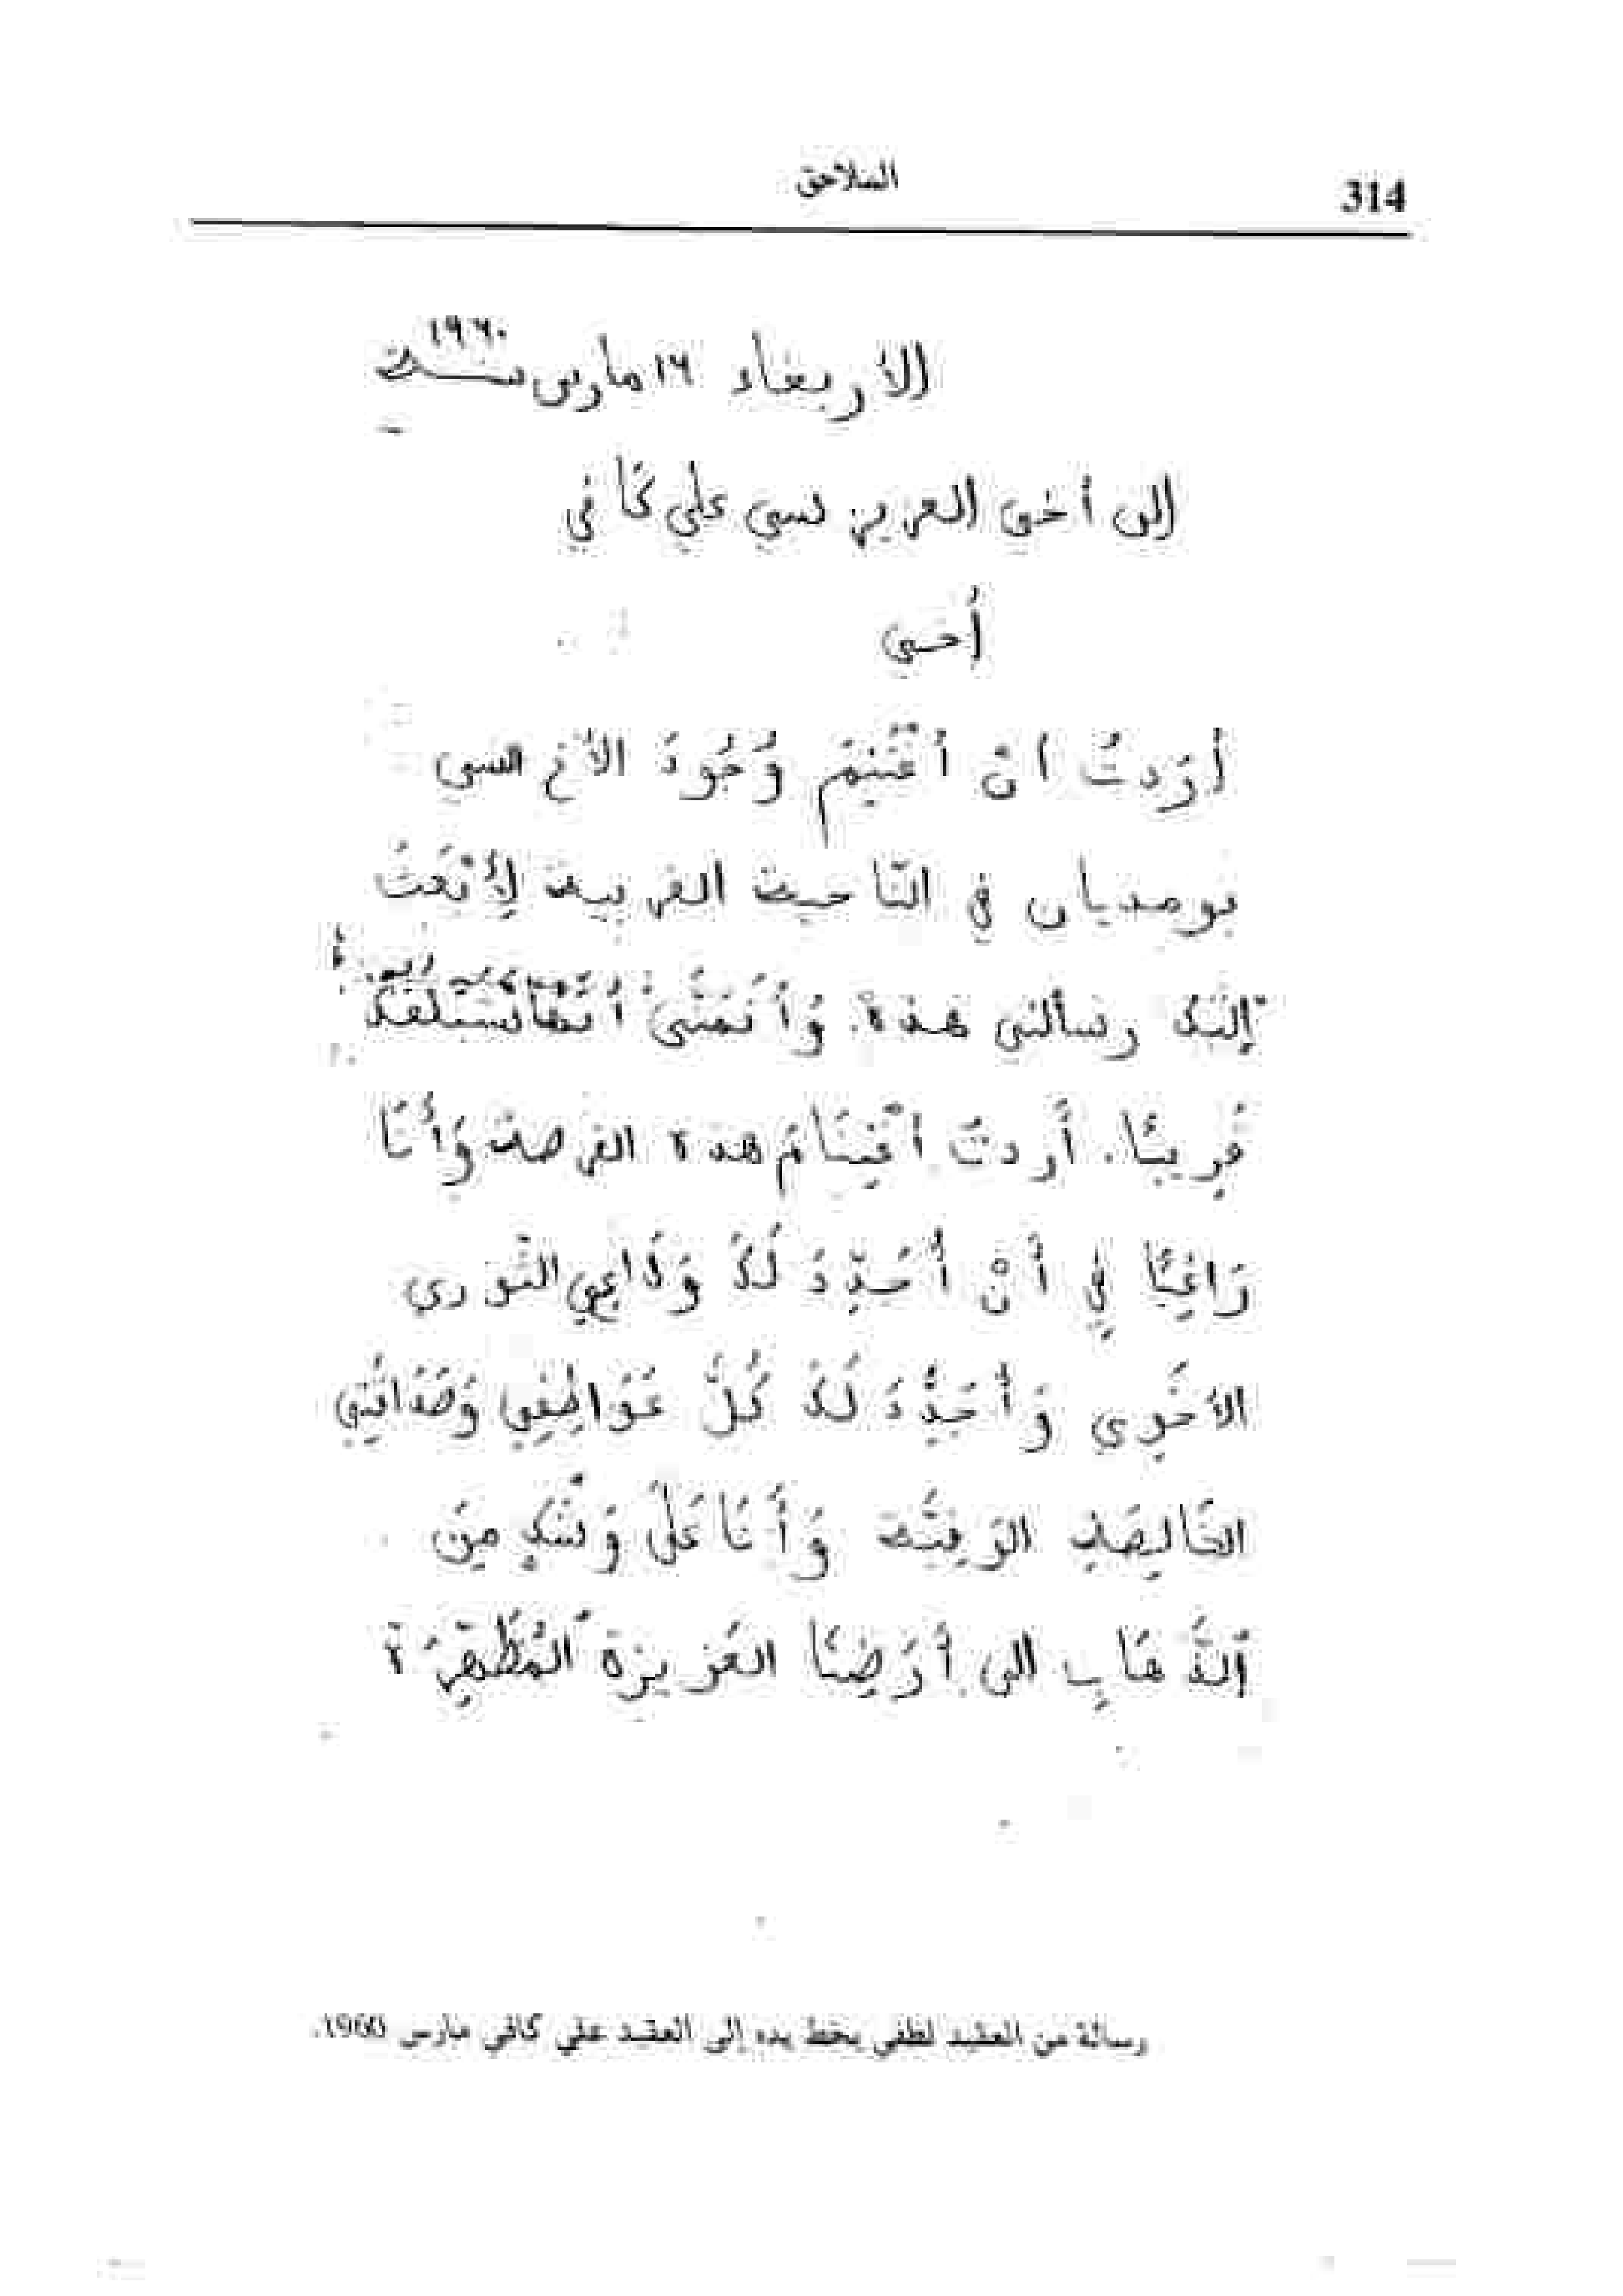 314
الملاحق
١٩٦٠
الاربعاء ١٦ مارس سنة
إلى أخي العزيز سي علي كَافي
أخي
أرَدتُ انْ أغْتَنِمَ وُجُودَ الأخ السي
بومديان في النّاحية الغربية لِأبْعَثَ
إلَيْكَ رسالتي هذه. وَأتَمَنَّى أنَّهَا سَتَلْقَكَ
قَرِيبًا. أردتُ اغْتِنَامَ هذه الفرصة وَأنَا
رَاغِبًا فِي أنْ أُجَدِّدَ لَكَ وَدَاعِي الثَّوري
الأخَوِي وَأُجَدِّدَ لَكَ كُلَّ عَوَاطِفِي وَصَدَاقَتِي
الخَالِصَةِ الوَفِيَّة وَأَنَا عَلَى وَشْكٍ مِنَ
الذَّهَابِ الى أرَضِنَا العَزِيزة المُطَهَّرَة
رسالة من العقيد لطفي بخط يده إلى العقيد علي كافي مارس 1960.